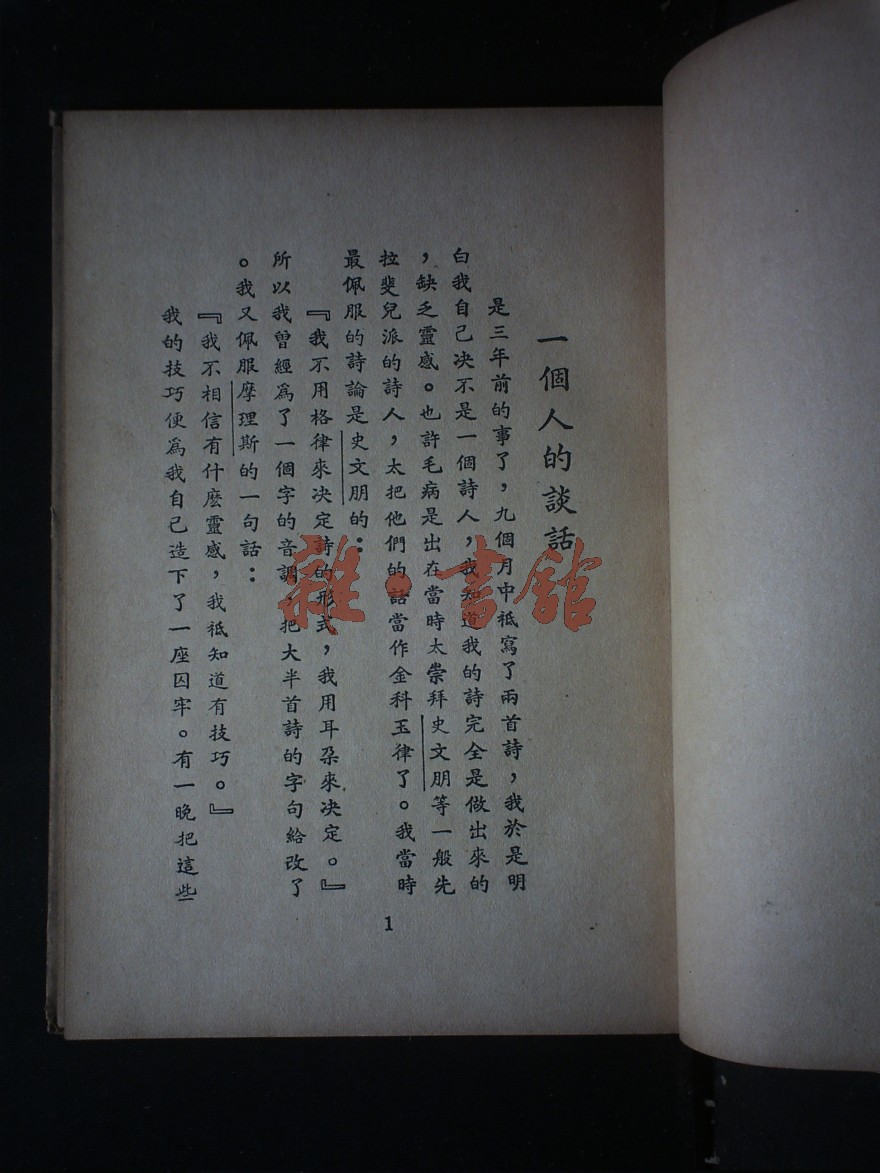 一個人的談話
是三年前的事了，九個月中祗寫了兩首詩，我於是明
白我自己决不是一個詩人，我知道我的詩完全是做出來的
，缺乏靈感。也許毛病是出在當時太崇拜史文朋等一般先
拉斐兒派的詩人，太把他們的話當作金科玉律了。我當時
最佩服的詩論是史文朋的：
『我不用格律來决定詩的形式，我用耳朶來决定。』
所以我曾經爲了一個字的音調，把大半首詩的字句給改了
。我又佩服摩理斯的一句話：
『我不相信有什麽靈感，我祗知道有技巧。』
我的技巧便爲我自己造下了一座囚牢。有一晚把這些
1
雜·書館